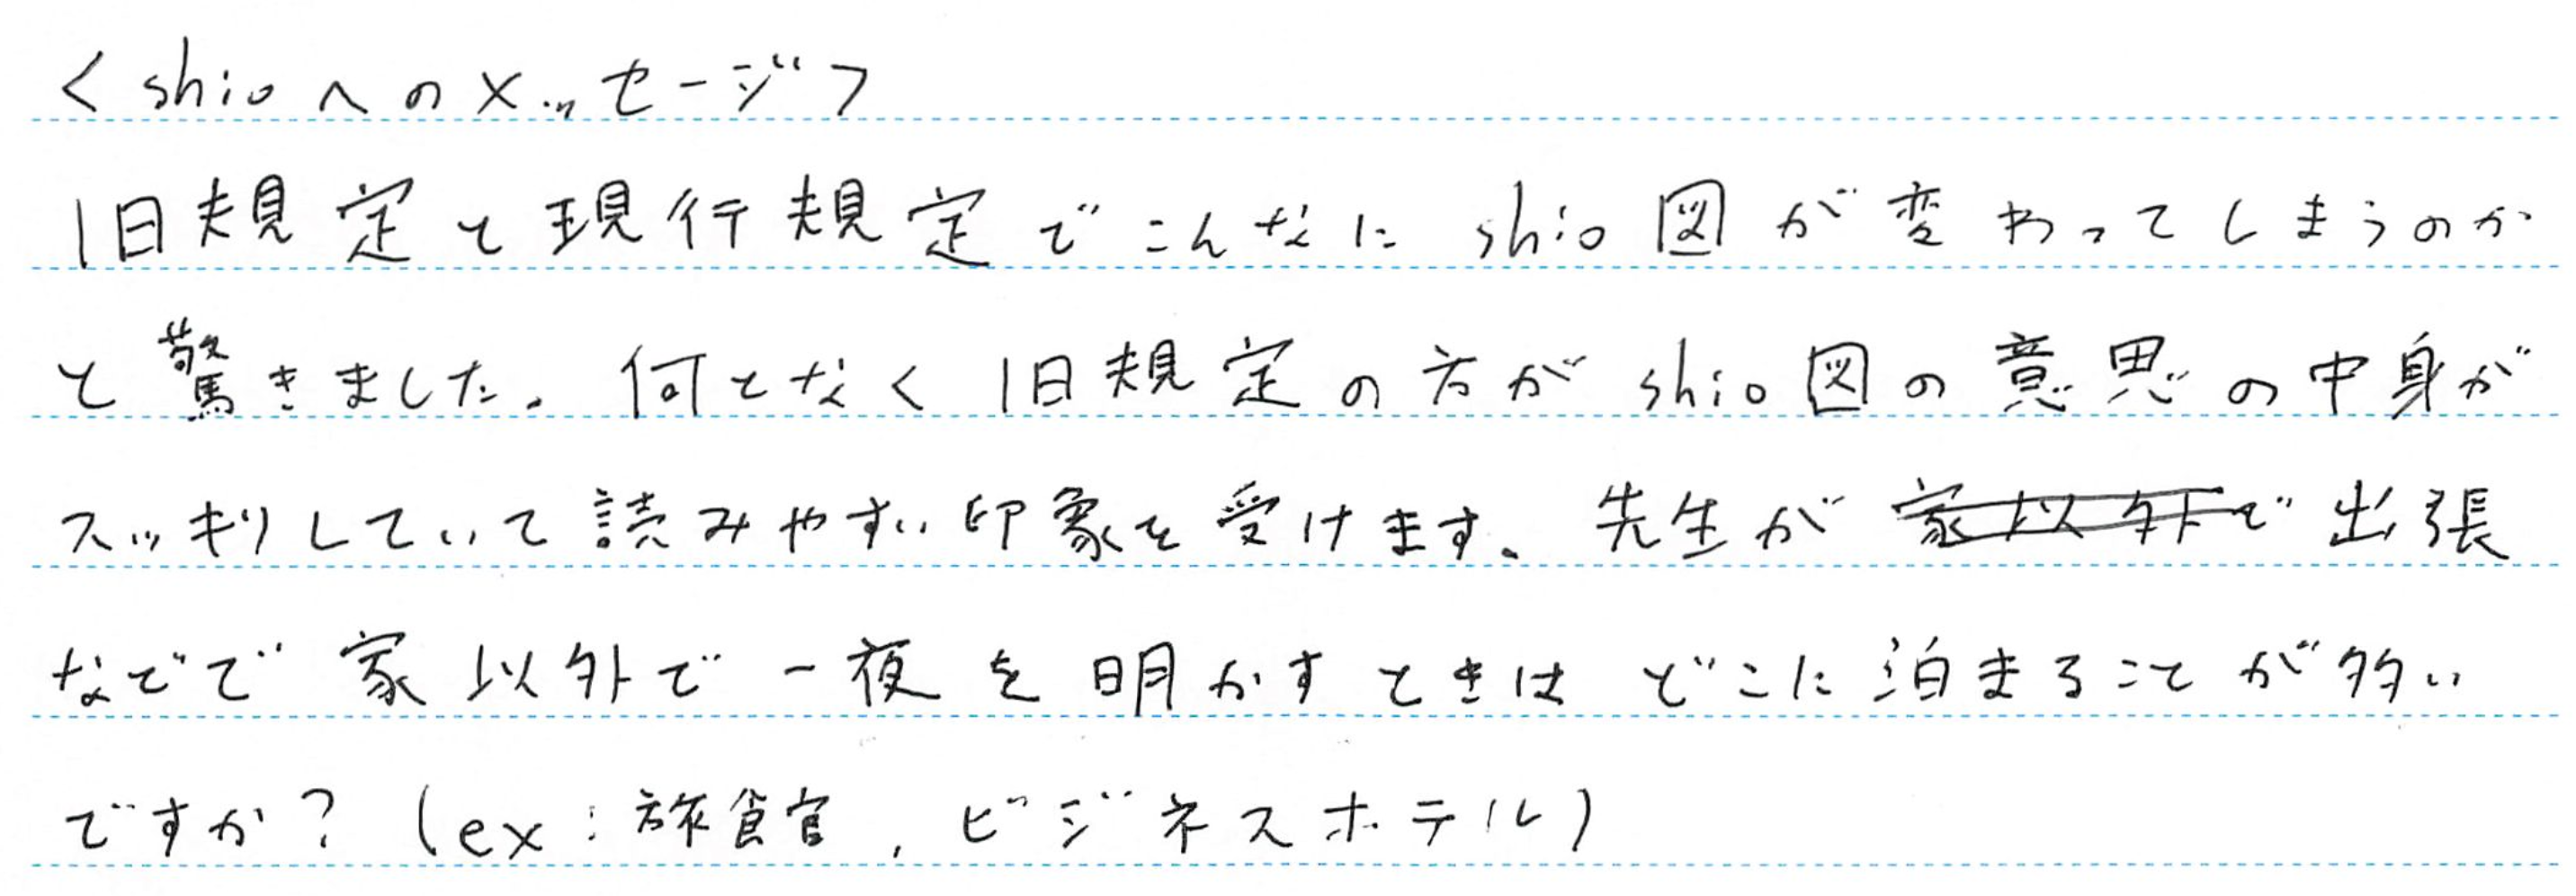 <shioへのメッセージ>
旧規定と現行規定でこんなにshio図が変わってしまうのか
と驚きました。何となく旧規定の方がshio図の意思の中身が
スッキリしていて読みやすい印象を受けます。先生が家以外で出張
などで家以外で一夜を明かすときはどこに泊まることが多い
ですか?(ex:旅館,ビジネスホテル)